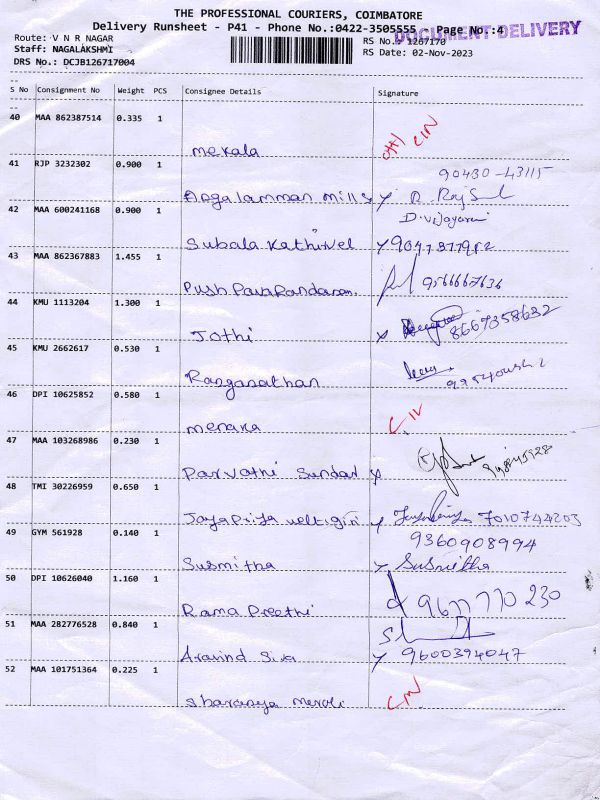 THE PROFESSIONAL COURIERS, COIMBATORE
Delivery Runsheet - P41 - Phone No.:0422-3505555 Page No.:4
DOCUMENT DELIVERY
Route: V N R NAGAR
RS No.: 1267170
Staff: NAGALAKSHMI
RS Date: 02-Nov-2023
DRS No.: DCJB126717004
S No Consignment No Weight PCS Consignee Details Signature
40 MAA 862387514 0.335 1
mekala
41 RJP 3232302 0.900 1
90430-43115
Angalamman mills
42 MAA 600241168 0.900 1
D.Vijayarani
Subala Kathirvel
43 MAA 862367883 1.455 1
9566667636
44 KMU 1113204 1.300 1
Jothi
8667358632
45 KMU 2662617 0.530 1
Ranganathan
46 DPI 10625852 0.580 1
menaka
47 MAA 103268986 0.230 1
Parvathi Sundar
48 TMI 30226959 0.650 1
Jayapriya veltigiri
7010744203
49 GYM 561928 0.140 1
9360908994
Susmitha Susmitha
50 DPI 10626040 1.160 1
Rama Preethi 9677770230
51 MAA 282776528 0.840 1
Aravind Siva 9600394047
52 MAA 101751364 0.225 1
Sharanya